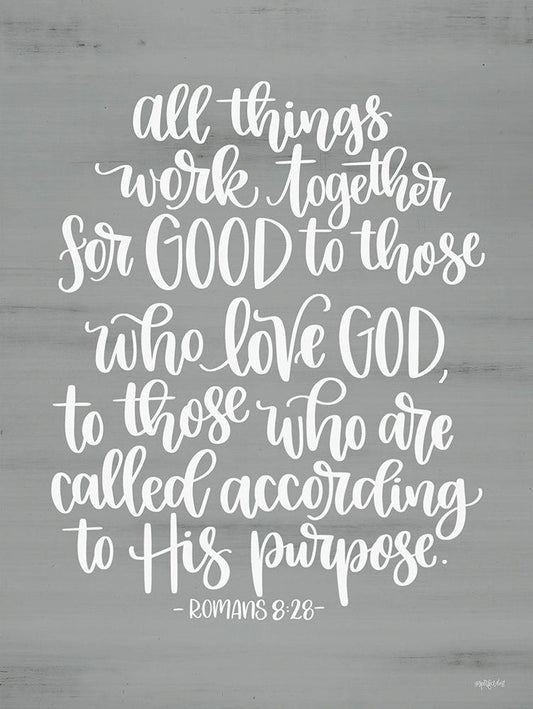 all things
work together
for GOOD to those
who love GOD,
to those who are
called according
to His purpose.
- ROMANS 8:28 -